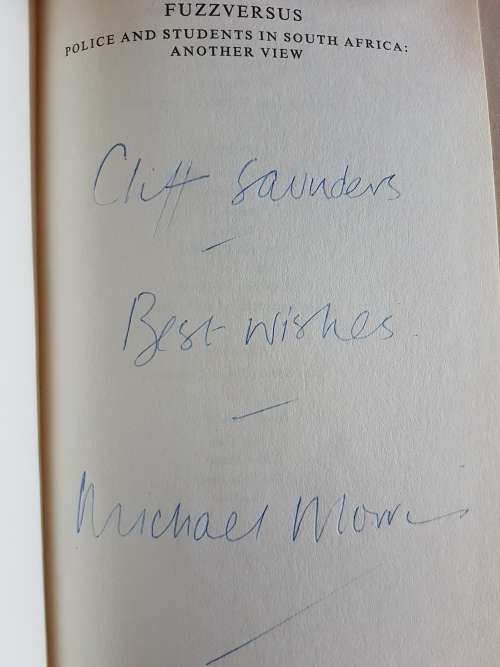 FUZZVERSUS
POLICE AND STUDENTS IN SOUTH AFRICA:
ANOTHER VIEW
Cliff Saunders
Best wishes
Michael Morris